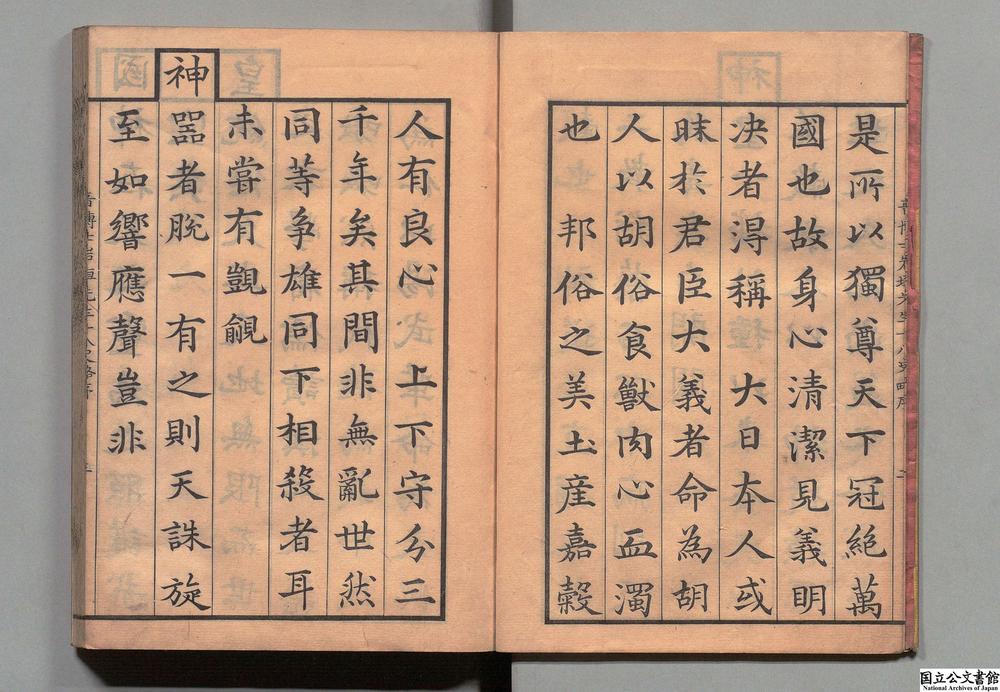 是所以獨尊天下冠絶萬
國也故身心清潔見義明
决者得稱 大日本人或
昧於君臣大義者命為胡
人以胡俗食獸肉心血濁
也 邦俗之美土産嘉糓
人有良心 上下守分三
千年矣其間非無亂世然
同等争雄同下相殺者耳
未嘗有覬覦
神器者脱一有之則天誅旋
至如響應聲豈非
国立公文書館
National Archives of Japan